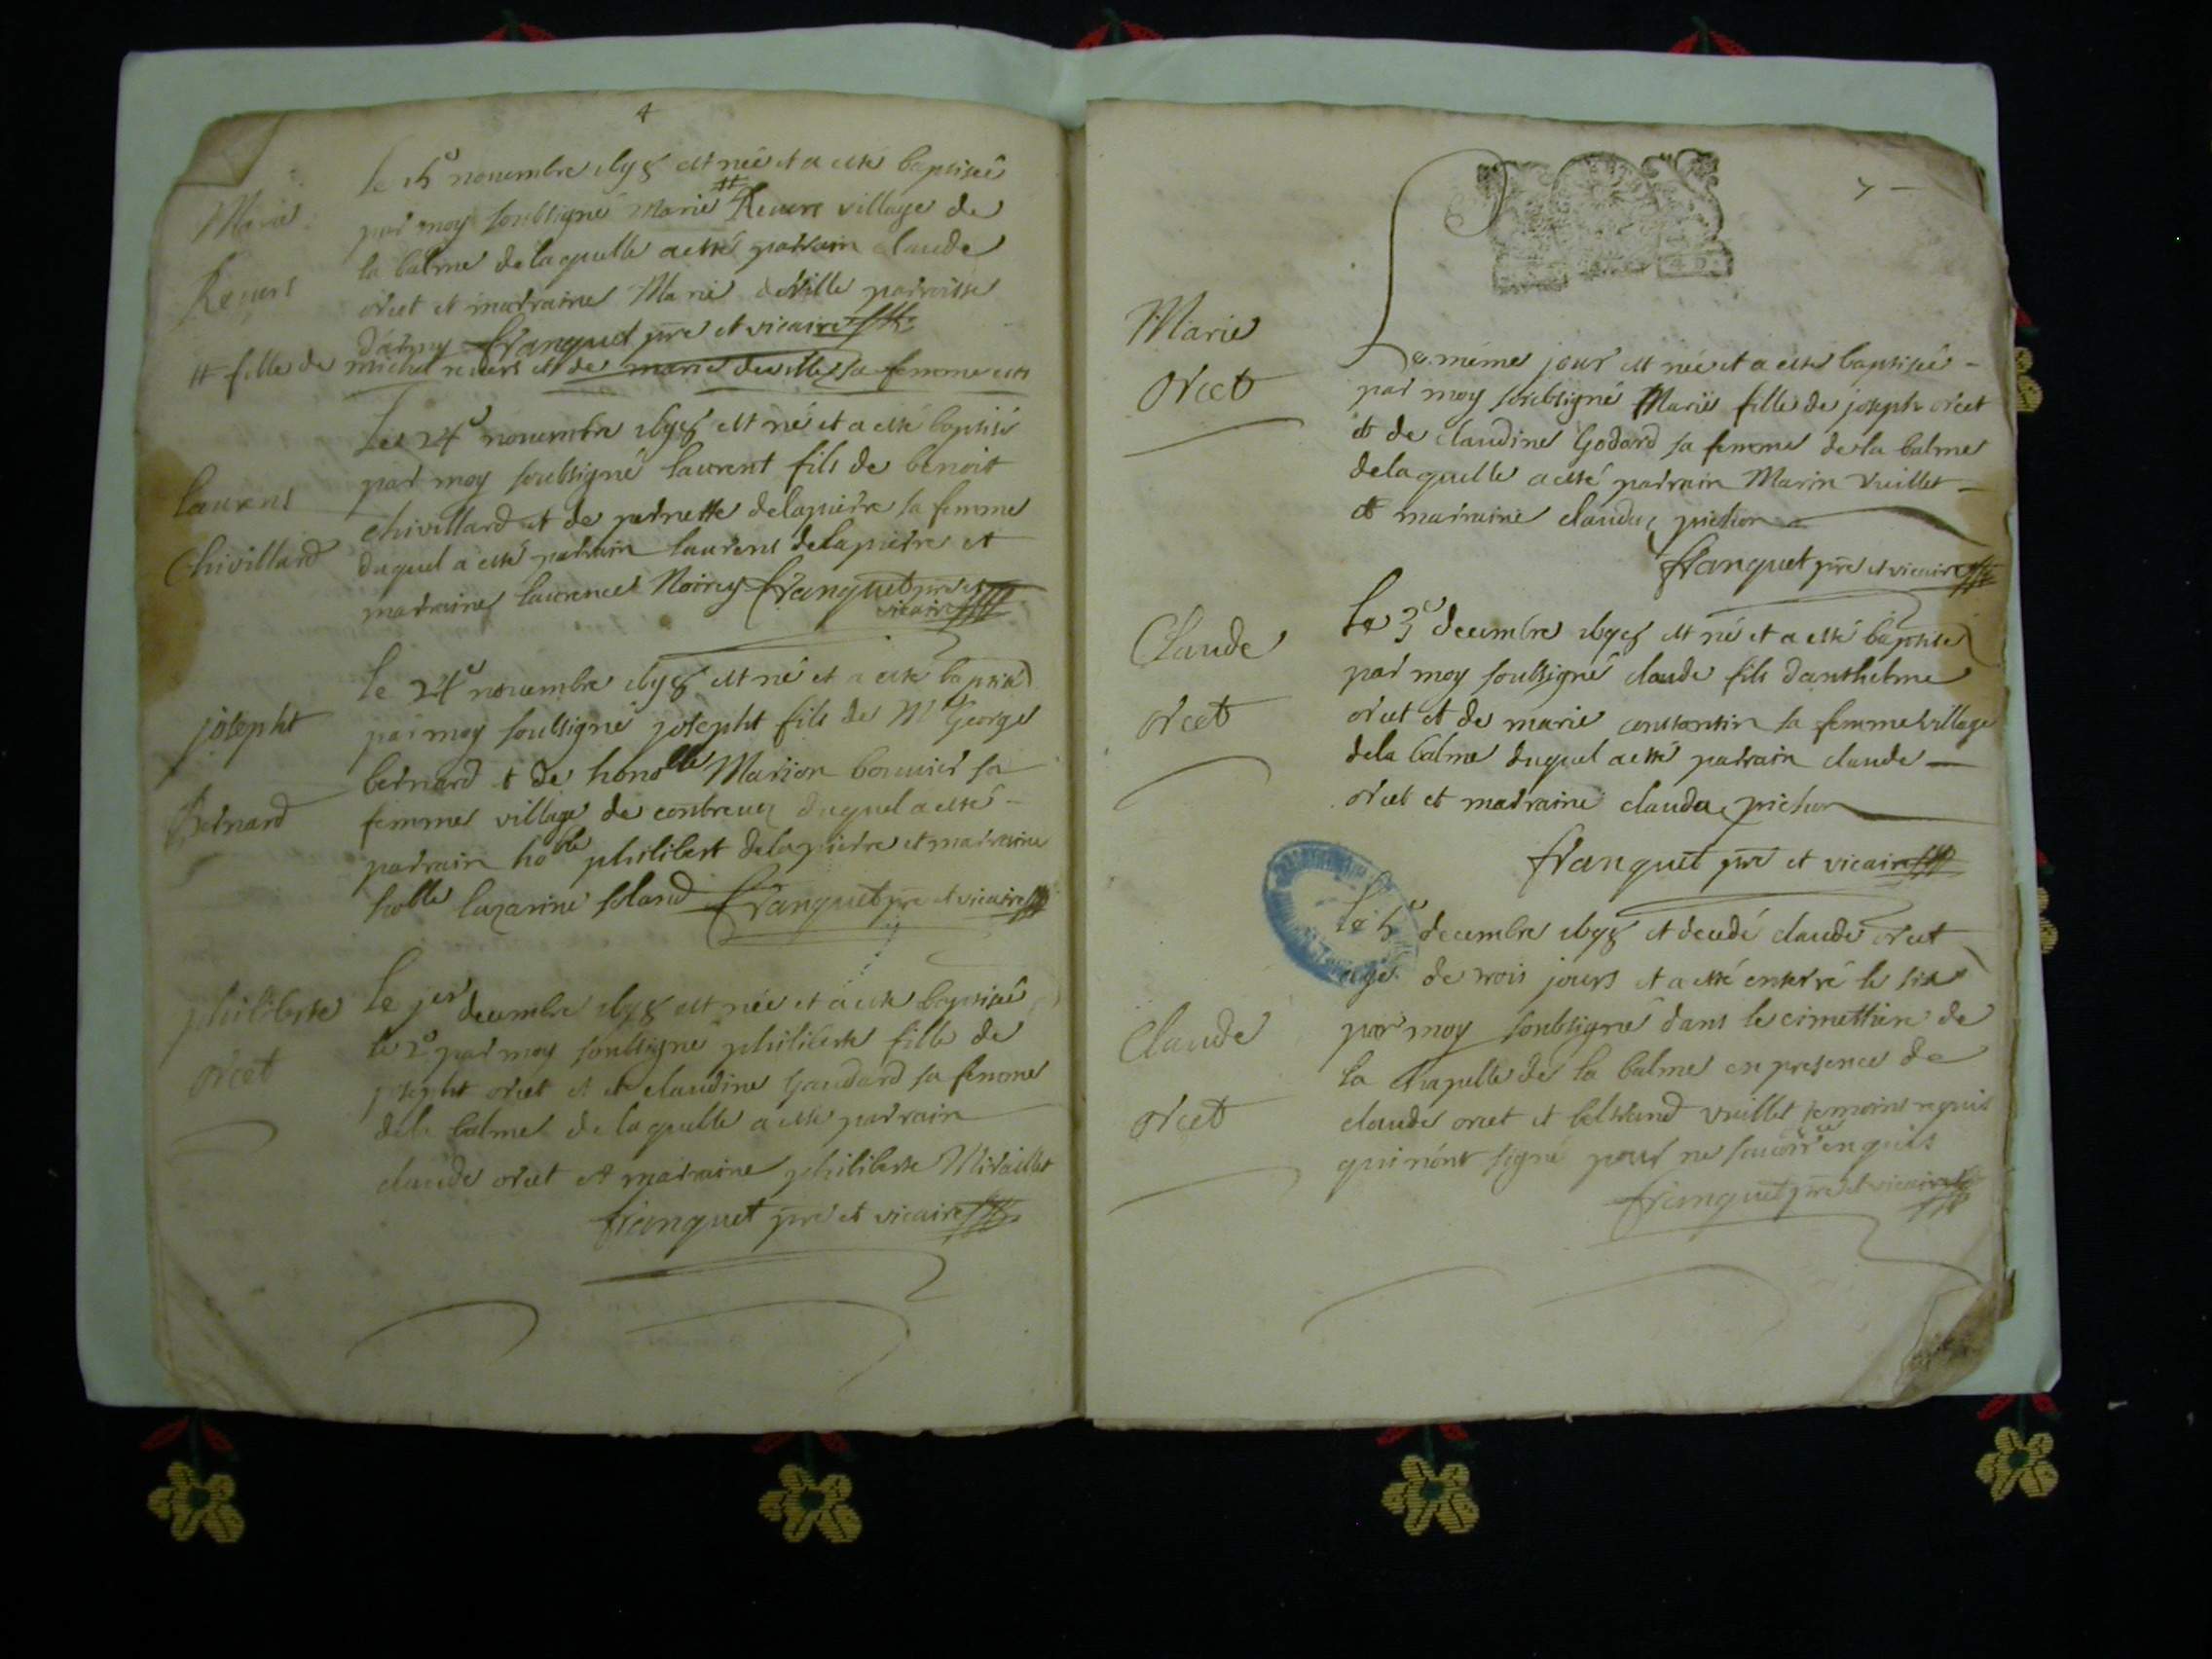 4
Marie
Reuers
le 15e nouembre 1698 est née et a esté baptisée
par moy soubsigné Marie # Reuers village de
la balme de laquelle a esté parrain claude
orcet et marraine Marie deville parroisse
franquet pre et vicaire
# fille de michel reuers et de marie deville sa femme
Laurens
Chivillard
Le 24e nouembre 1698 est né et a esté baptisé
par moy soubsigné laurent fils de benoit
chivillard et de pernette delapierre sa femme
duquel a esté parrain laurens delapierre et
marraine laurence Noirey franquet pre et
vicaire
josepht
Bernard
le 24e nouembre 1698 est né et a esté baptisé
par moy soubsigné josepht fils de Mr George
bernard et de honoble Marion bouuier sa
femme village de duquel a esté
parrain hoble philibert delapierre et marraine
hoble lazarine soland franquet pre et vicaire
philiberte
orcet
le jer decembre 1698 est née et a esté baptisée
le 2e par moy soubsigné philiberte fille de
josepht orcet et de claudine gaudard sa femme
dela balme de laquelle a esté parrain
claude orcet et marraine philiberte Miraillet
franquet pre et vicaire
Marie
Orcet
Le méme jour est née et a esté baptisée
par moy soubsigné Marie fille de joseph orcet
et de claudine Godard sa femme de la balme
delaquelle a esté parrain Marin vuillet
et marraine clauda pichon
franquet pre et vicaire
Claude
orcet
Le 3e decembre 1698 est né et a esté baptisé
par moy soubsigné claude fils danthelme
orcet et de marie constantin sa femme village
dela balme duquel a esté parrain claude
orcet et marraine clauda pichon
franquet pre et vicaire
Claude
orcet
Le 5e decembre 1698 et decedé claude orcet
agé de trois jours et a esté enterré le six
par moy soubsigné dans le cimettiere de
la chapelle de la balme en presence de
claude orcet et beltrand vuillet temoins requis
qui n'ont signé pour ne sauoir enquis
franquet pre et vicaire